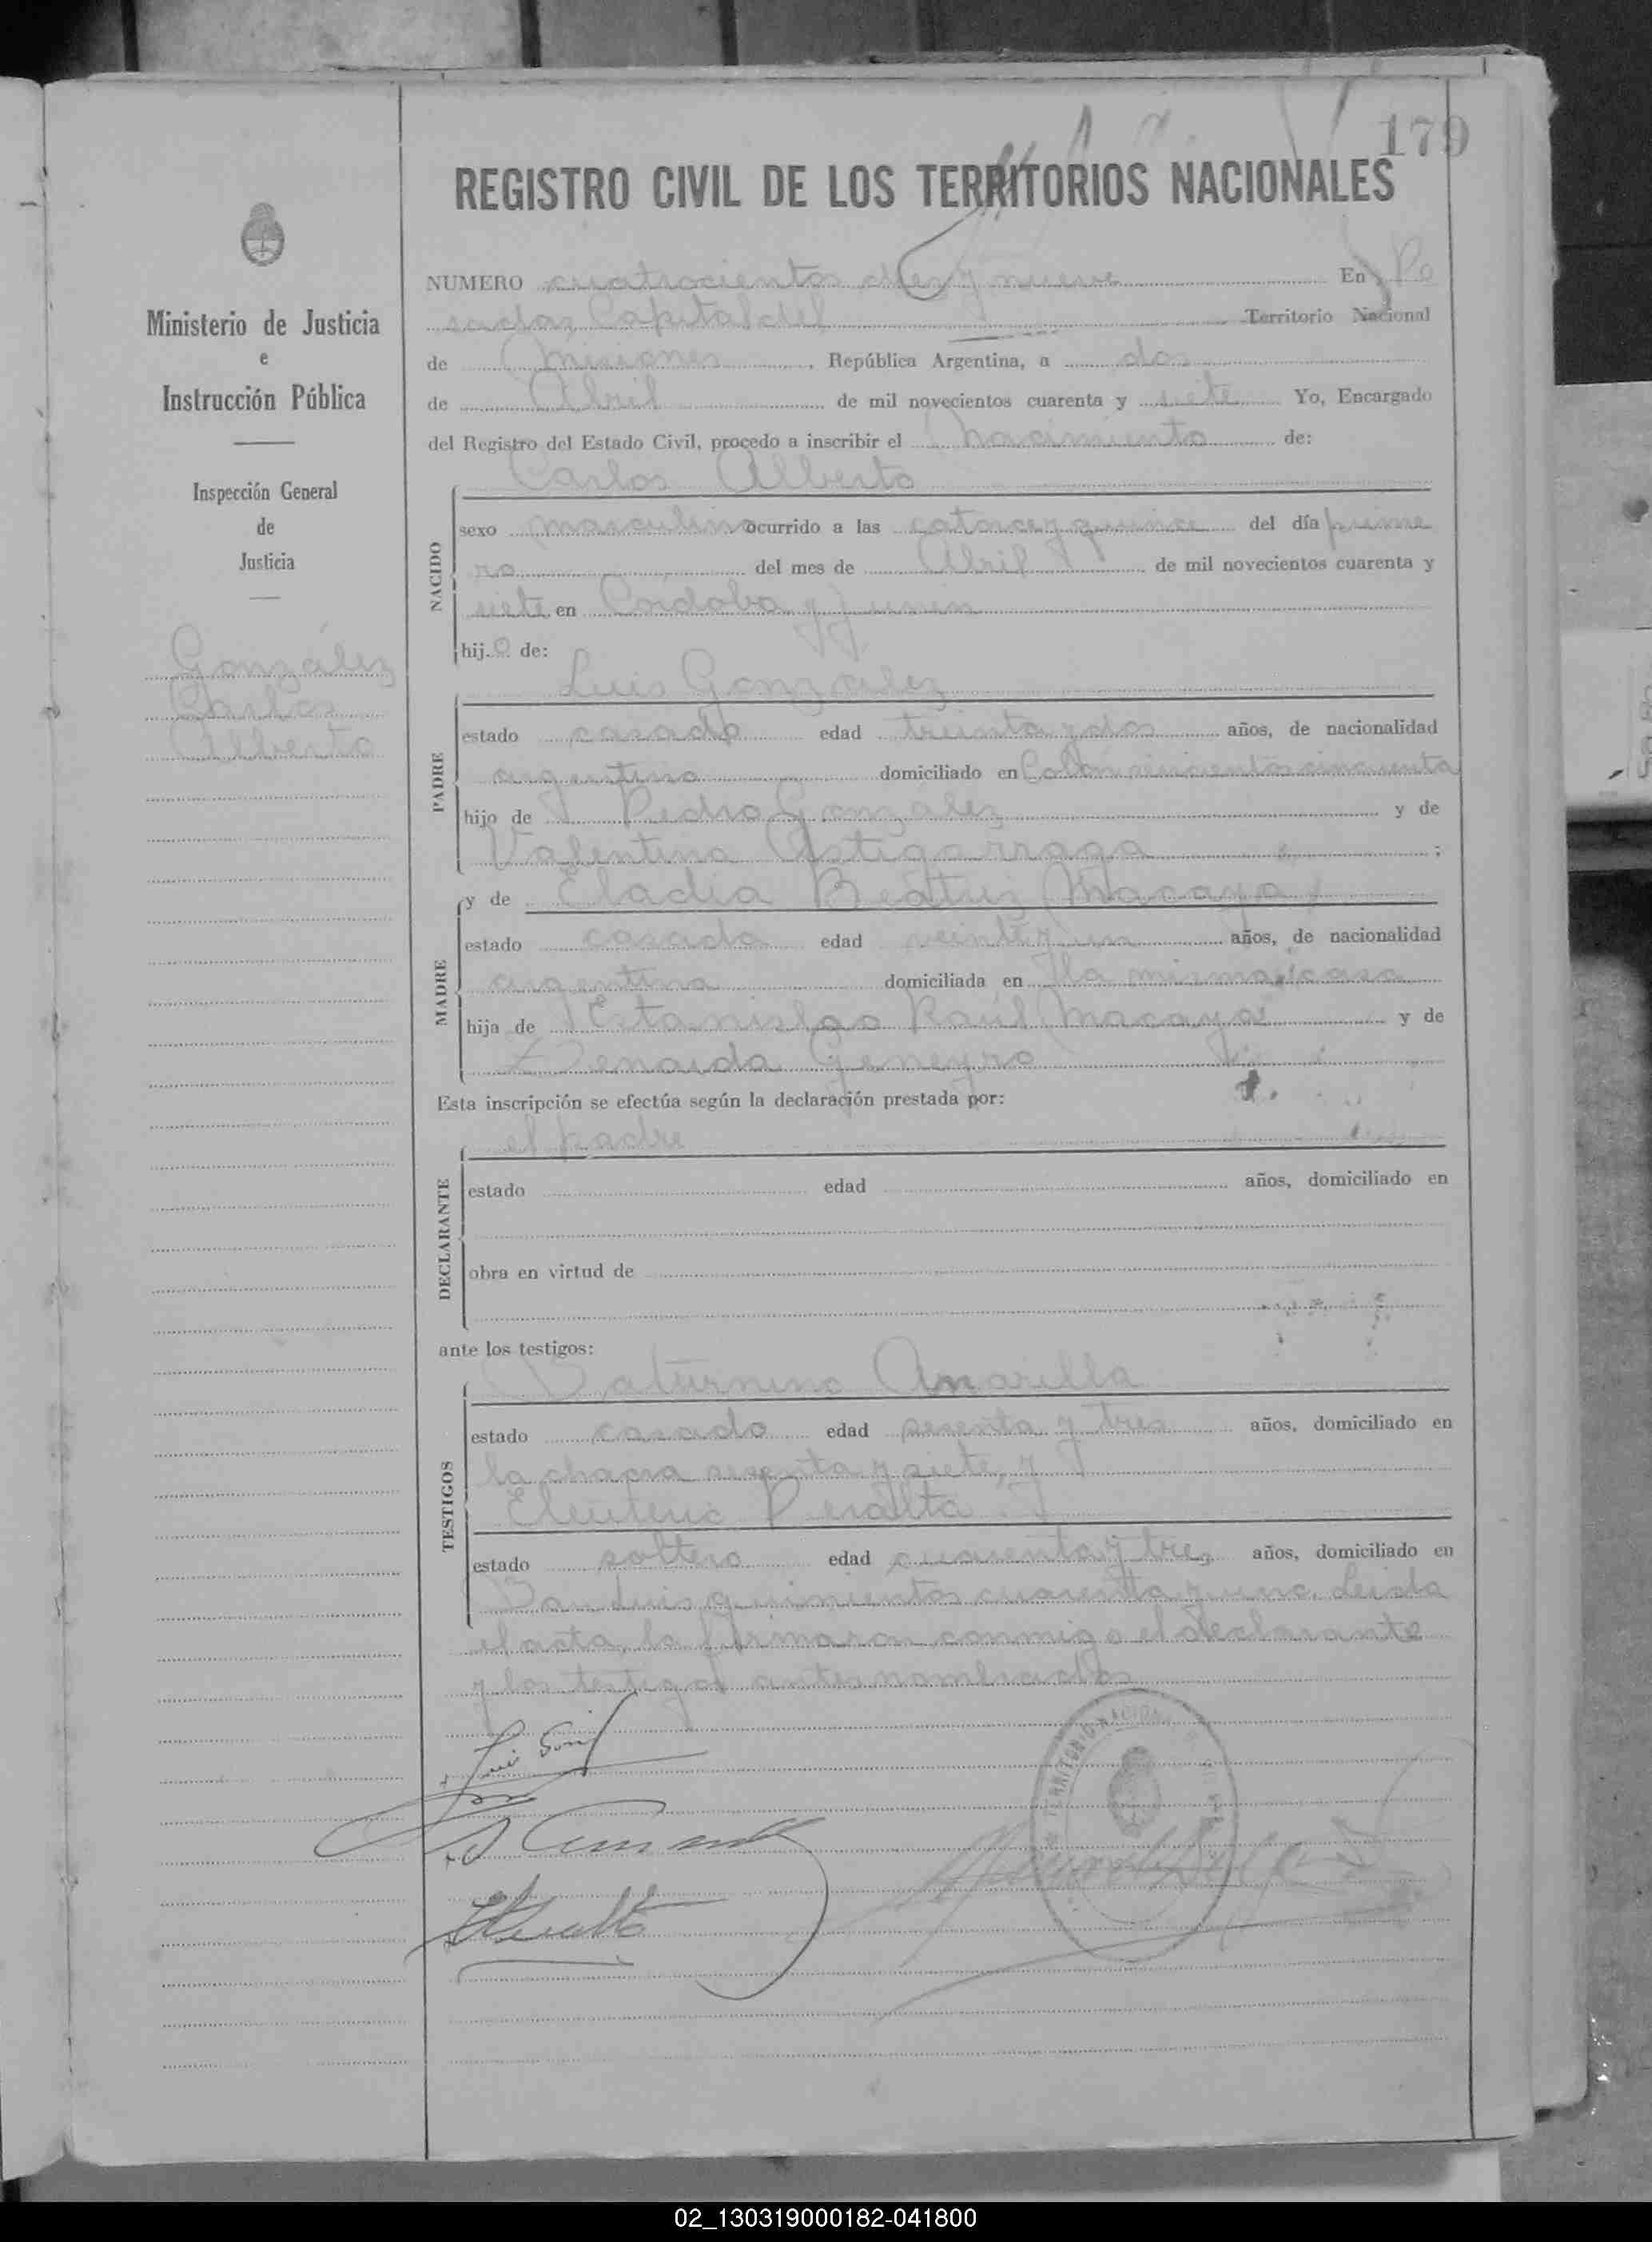 179
REGISTRO CIVIL DE LOS TERRITORIOS NACIONALES
Ministerio de Justicia
e
Instrucción Pública
Inspección General
de
Justicia
González
Carlos
Alberto
NUMERO cuatrocientos diez y nueve En Po
sadas Capital del Territorio Nacional
de Misiones, República Argentina, a dos
de Abril de mil novecientos cuarenta y siete Yo, Encargado
del Registro del Estado Civil, procedo a inscribir el nacimiento de:
Carlos Alberto
NACIDO
sexo masculino ocurrido a las catorce y quince del día prime
ro del mes de Abril de mil novecientos cuarenta y
siete en Córdoba y Junin
hijo de:
Luis González
PADRE
estado casado edad treinta y dos años, de nacionalidad
argentina domiciliado en Colón cincuenta
hijo de Pedro González y de
Valentina Astigarraga;
y de Eladia Beatriz Macaya,
MADRE
estado casada edad veinte y un años, de nacionalidad
argentina domiciliada en la misma casa
hija de Estanislao Raúl Macaya y de
Zenaida Geneyro
Esta inscripción se efectúa según la declaración prestada por:
el padre
DECLARANTE
estado edad años, domiciliado en
obra en virtud de
ante los testigos:
Saturnino Amarilla
TESTIGOS
estado casado edad sesenta y tres años, domiciliado en
la chacra sesenta y siete, y
Eleuterio Peralta
estado soltero edad cuarenta y tres años, domiciliado en
San Luis quinientos cuarenta y uno. Leida
el acta, la firmaron conmigo el declarante
y los testigos antes nombrados
TERRITORIO NACIONAL
02_130319000182-041800